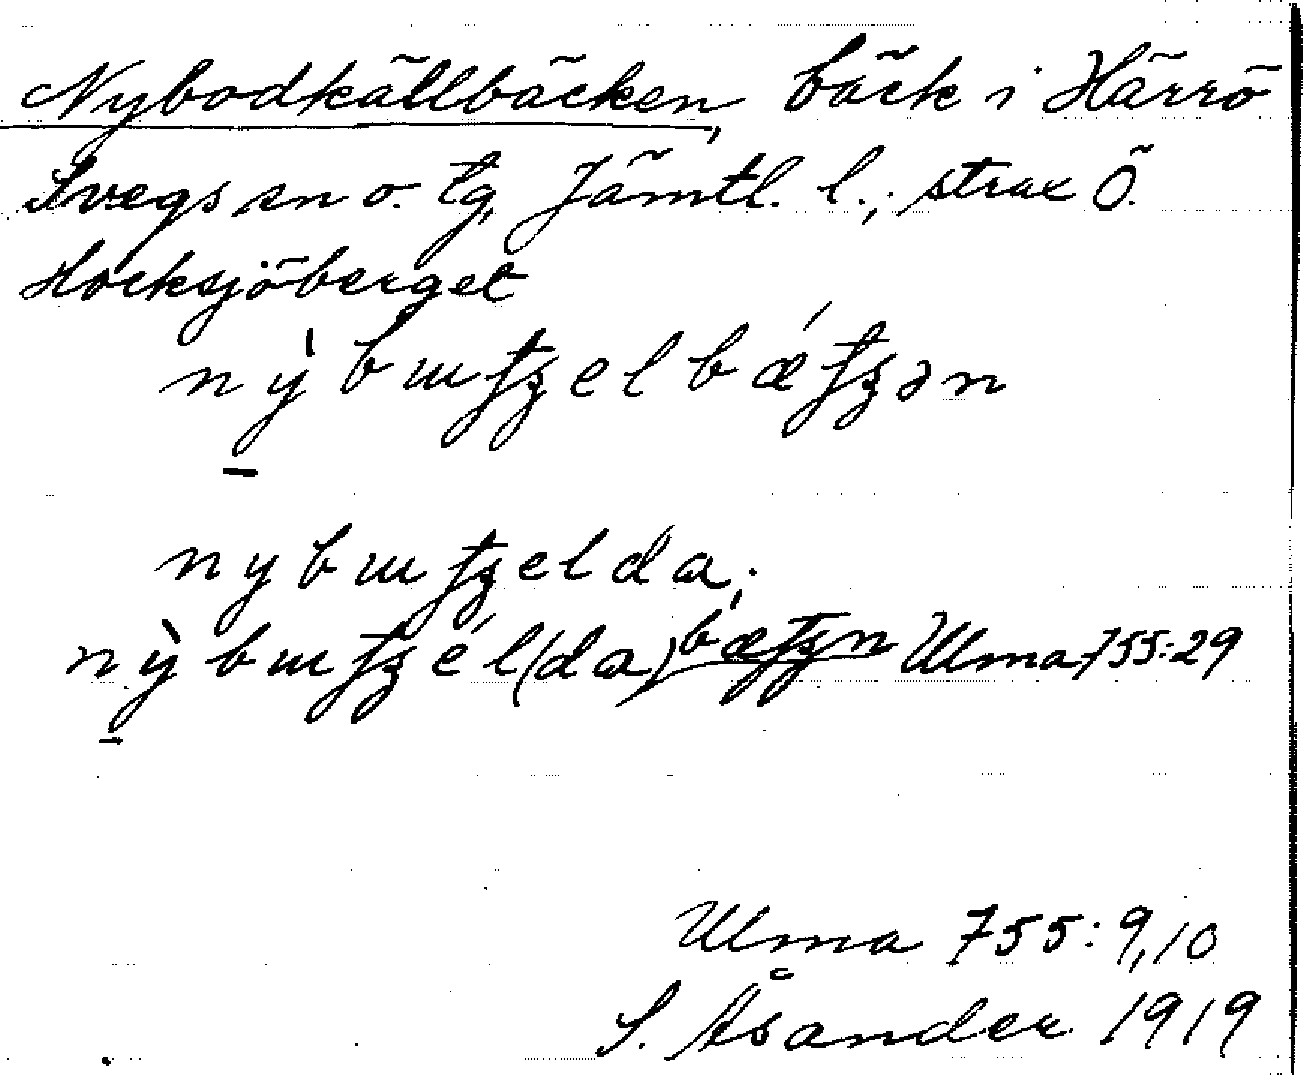 Nybodkällbäcken, bäck i Härrö
Svegs sn o. tg, Jämtl. l.; strax Ö.
Hocksjöberget
nỳbɯʈʒelbǽʈʒən
nybɯʈʒelda;
nỳbɯʈʒél(da)bæʈʒn Ulma 755:29
Ulma 755:9,10
S. Åsander 1919